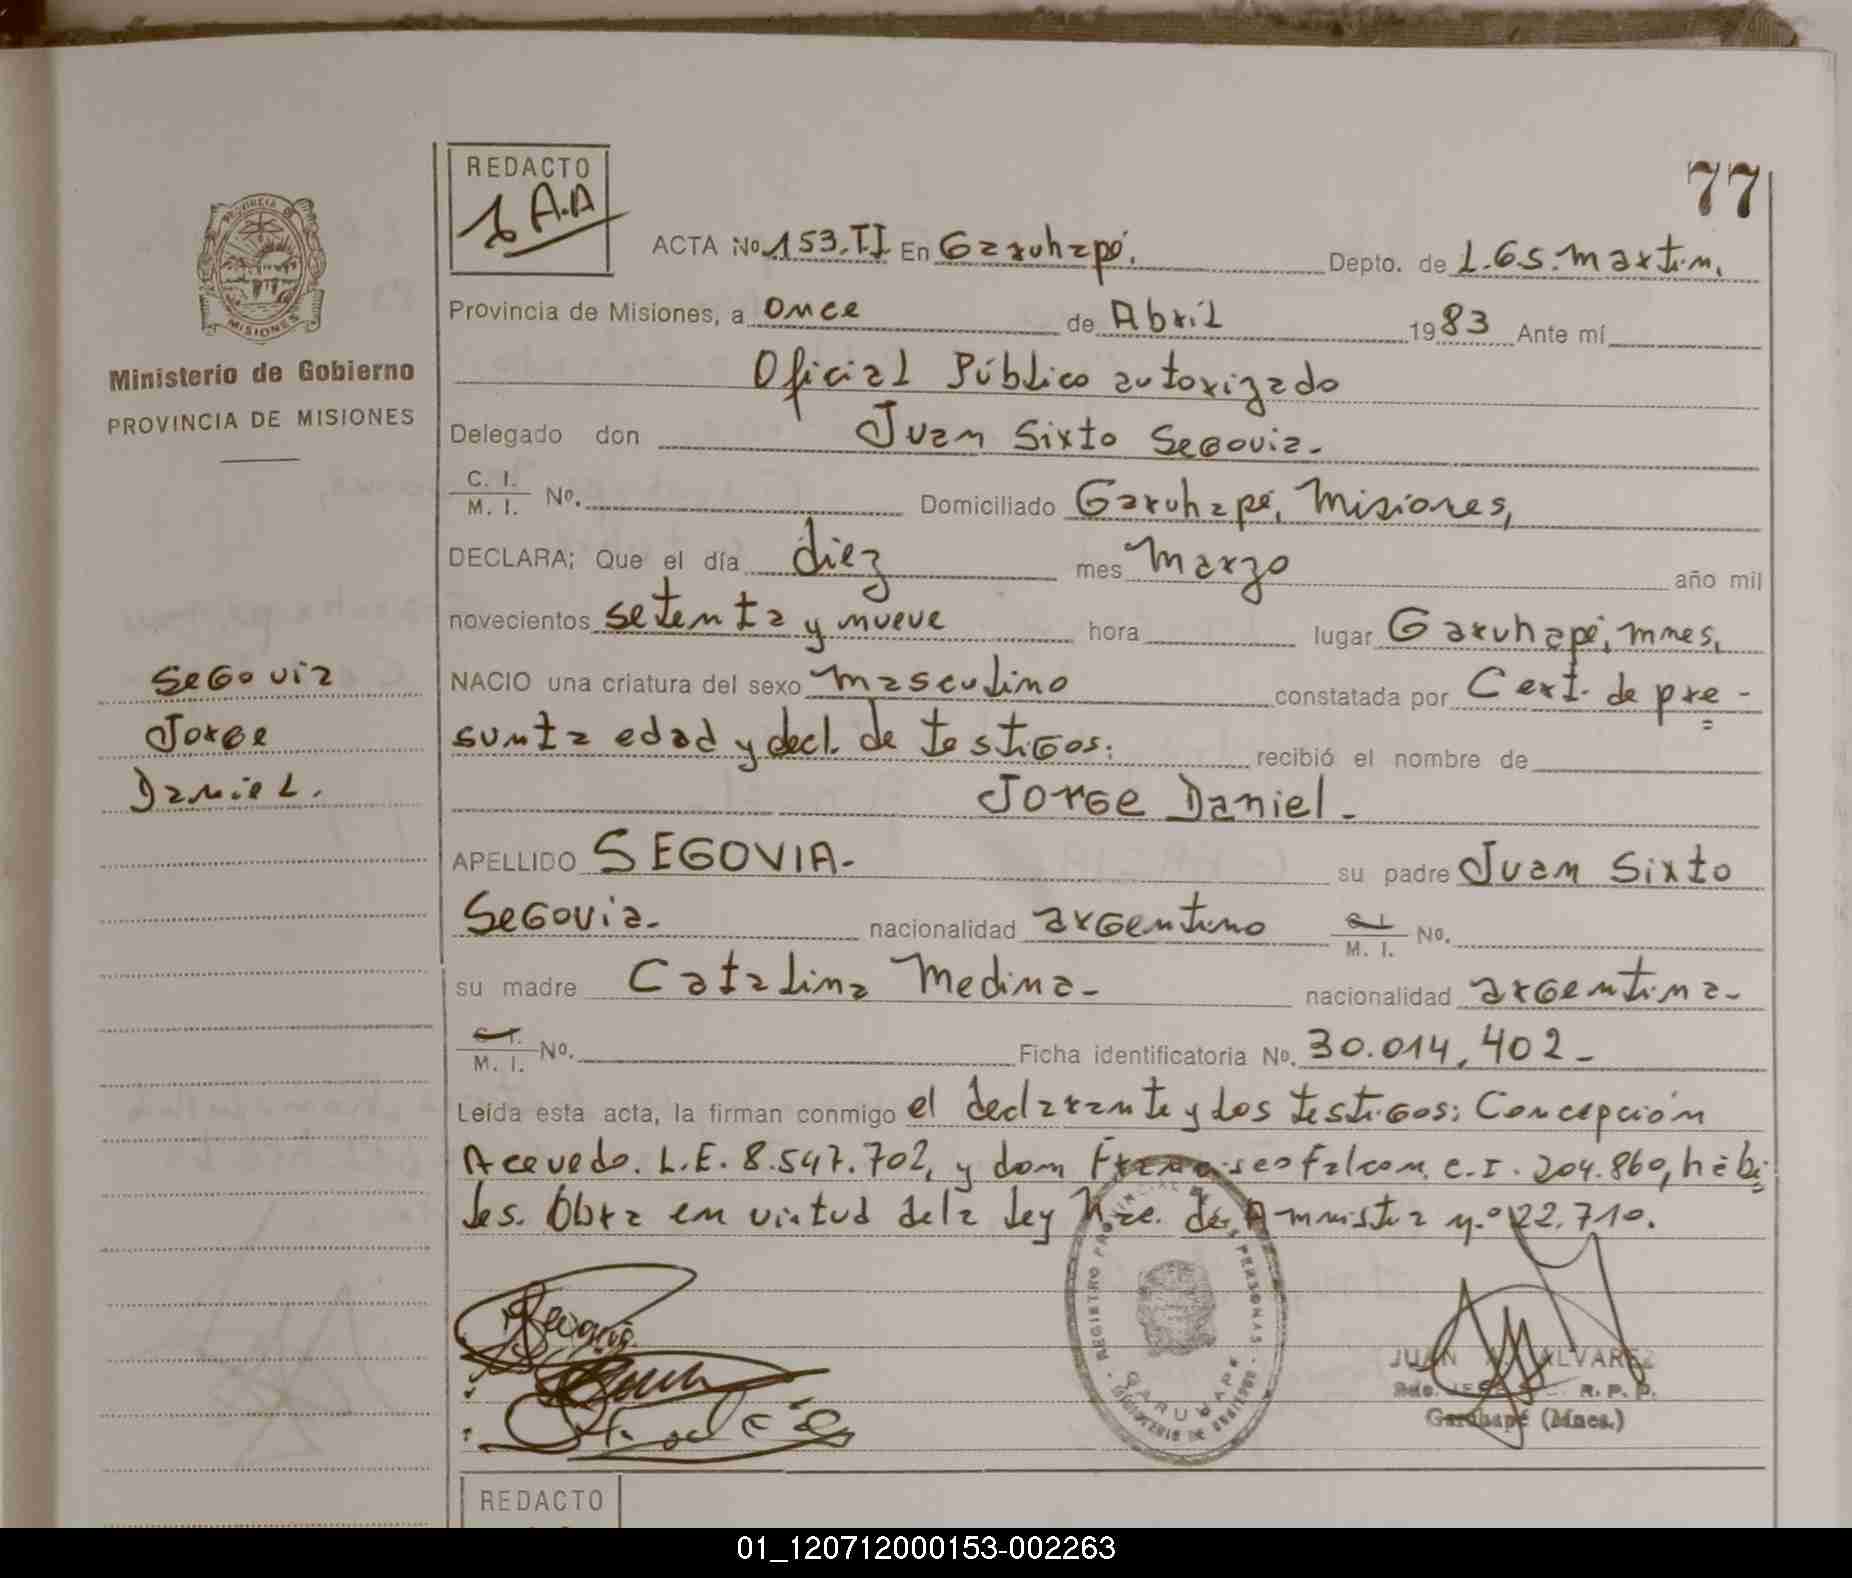 77
REDACTO
J A.A
PROVINCIA DE
MISIONES
Ministerio de Gobierno
PROVINCIA DE MISIONES
ACTA No. 153.TI En Garuhapé. Depto. de L.G.S. Martin,
Provincia de Misiones, a once de Abril 1983 Ante mí
Oficial Público autorizado
Delegado don Juan Sixto Segovia-
C. I. / M. I. No. Domiciliado Garuhapé, Misiones,
DECLARA; Que el día diez mes Marzo año mil
novecientos setenta y nueve hora lugar Garuhapé, Mnes,
NACIO una criatura del sexo masculino constatada por Cert. de pre-
sunta edad y decl. de testigos: recibió el nombre de
Jorge Daniel-
Segovia
Jorge
Daniel.
APELLIDO SEGOVIA- su padre Juan Sixto
Segovia- nacionalidad argentino C. I. / M. I. No.
su madre Catalina Medina- nacionalidad argentina-
C. I. / M. I. No. Ficha identificatoria No. 30.014,402-
Leída esta acta, la firman conmigo el declarante y los testigos: Concepción
Acevedo. L.E. 8.547.702, y don Francisco Falcon, C.I. 204.860, hábi
les. Obra en virtud de la Ley Nac. de Amnistia n.º 22.710.
REGISTRO PROVINCIAL DE LAS PERSONAS
GARUHAPE
JUAN A. ALVAREZ
R. P. P.
Garuhapé (Mnes.)
REDACTO
01_120712000153-002263